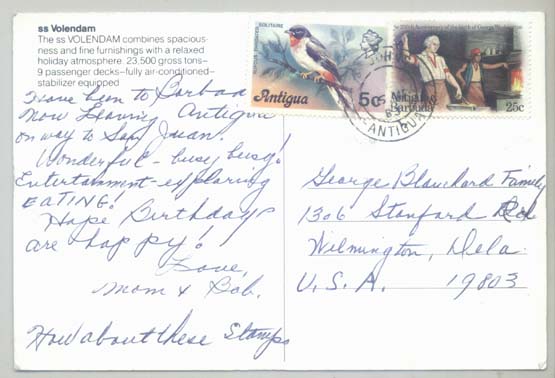 ss Volendam
The ss VOLENDAM combines spacious-
ness and fine furnishings with a relaxed
holiday atmosphere. 23,500 gross tons–
9 passenger decks–fully air-conditioned–
stabilizer equipped
have been to Barbad
now leaving Antigua
on way to San Juan.
Wonderful - busy busy!
Entertainment - exploring
EATING!
Hope Birthdays
are happy!
Love,
Mom & Bob.
How about these Stamps
SOLITAIRE
Antigua 5c
Antigua &
Barbuda 25c
ANTIGUA
George Blanchard Family
1306 Stanford Rd
Wilmington, Dela.
U.S.A. 19803